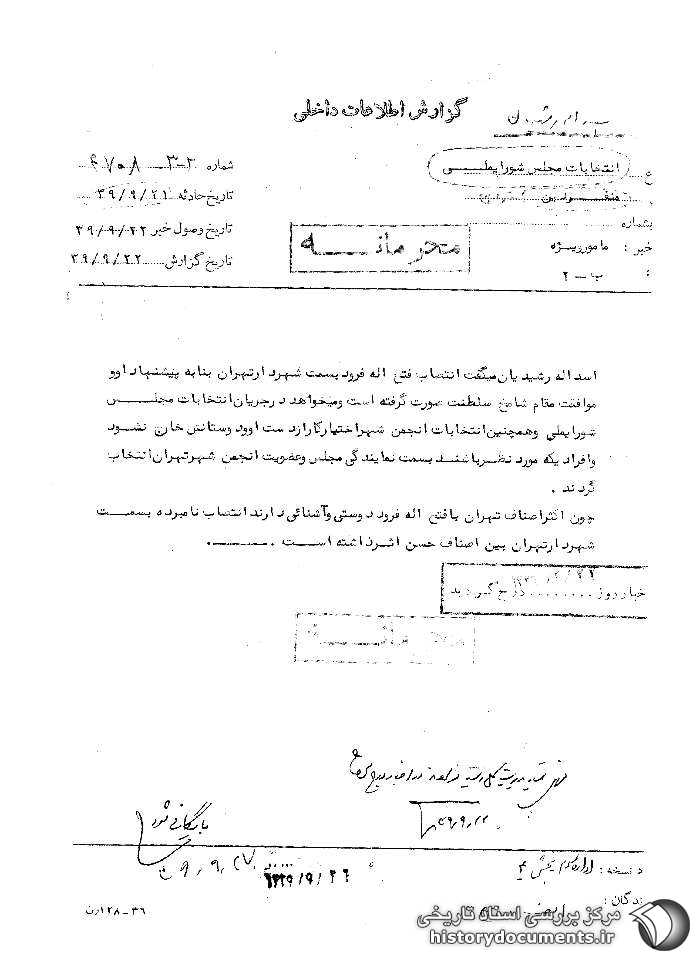 گزارش اطلاعات داخلی
انتخابات مجلس شورایملی
شماره ۶۷۰۸-۳-۲
تاریخ حادثه ۳۹/۹/۲۱
بشماره
تاریخ وصول خبر ۳۹/۹/۲۲
خبر : مامور ویژه
تاریخ گزارش ۳۹/۹/۲۲
ب - ۲
محرمانه
اسداله رشیدیان میگفت انتصاب فتح اله فرود بسمت شهردارتهران بنابه پیشنهاد او و
موافقت مقام شامخ سلطنت صورت گرفته است ومیخواهد درجریان انتخابات مجلس
شورایملی وهمچنین انتخابات انجمن شهراختیارکارازدست اوود وستانش خارج نشود
وافرادیکه مورد نظرباشند بسمت نمایندگی مجلس وعضویت انجمن شهرتهران انتخاب
گردند .
چون اکثراصناف تهران بافتح اله فرود دوستی وآشنائی دارند انتصاب نامبرده بسمت
شهردارتهران بین اصناف حسن اثرداشته است .
خبار روز ........ درج گردید
محرمانه
۳۹/۹/۲۲
بایگانی شود
۹/۲۷
۱۳۳۹/۹/۲۶
د نسخه : اداره کل سوم بخش ۴
ندگان :
۳۶-۱۲۸رن
مرکز بررسی اسناد تاریخی
historydocuments.ir